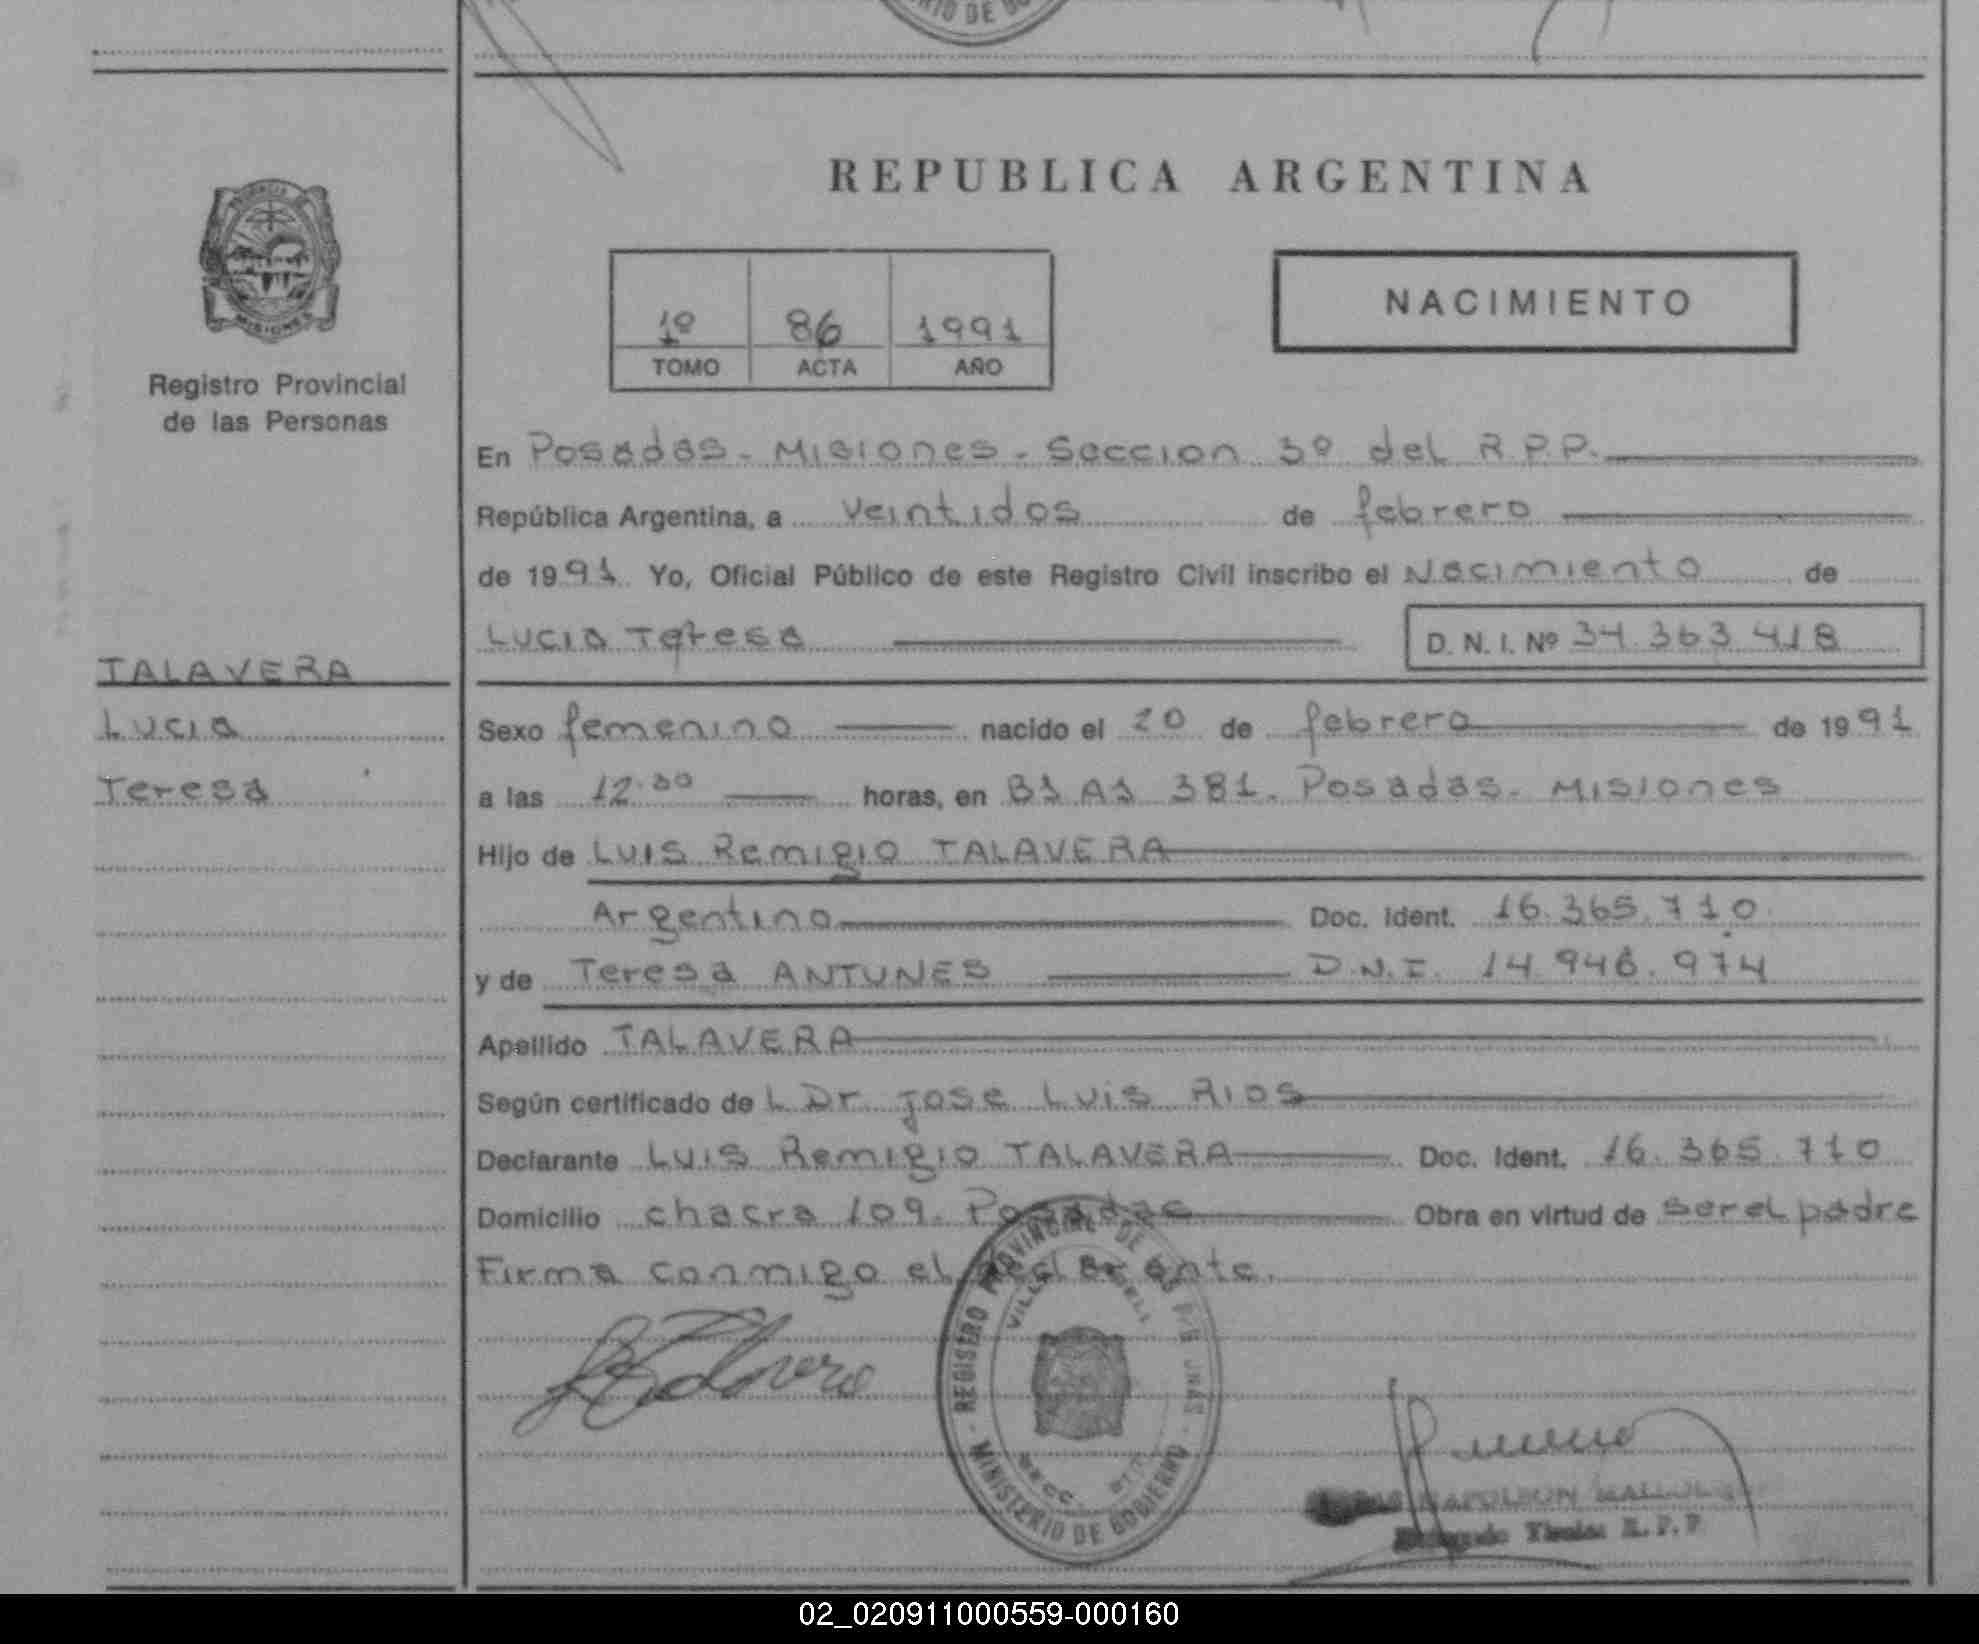 RIO DE GO
REPUBLICA ARGENTINA
MISIONES
Registro Provincial
de las Personas
1º 86 1991
TOMO ACTA AÑO
NACIMIENTO
En Posadas - Misiones - Seccion 3º del R.P.P.
República Argentina, a veintidos de febrero
de 1991. Yo, Oficial Público de este Registro Civil inscribo el Nacimiento de
Lucia Teresa D. N. I. Nº 34.363.418
TALAVERA
Lucia
Teresa
Sexo femenino nacido el 20 de febrero de 1991
a las 12.30 horas, en Bs As 381. Posadas - Misiones
Hijo de LUIS Remigio TALAVERA
Argentino Doc. Ident. 16.365.710
y de Teresa ANTUNES D.N.I. 14.946.974
Apellido TALAVERA
Según certificado de L Dr Jose Luis Rios
Declarante LUIS Remigio TALAVERA Doc. Ident. 16.365.710
Domicilio chacra 109. Posadas Obra en virtud de ser el padre
Firma conmigo el declarante.
REGISTRO PROVINCIAL DE LAS PERSONAS
VILLA
SECC.
MINISTERIO DE GOBIERNO
NAPOLEON
Titular R.P.P
02_020911000559-000160